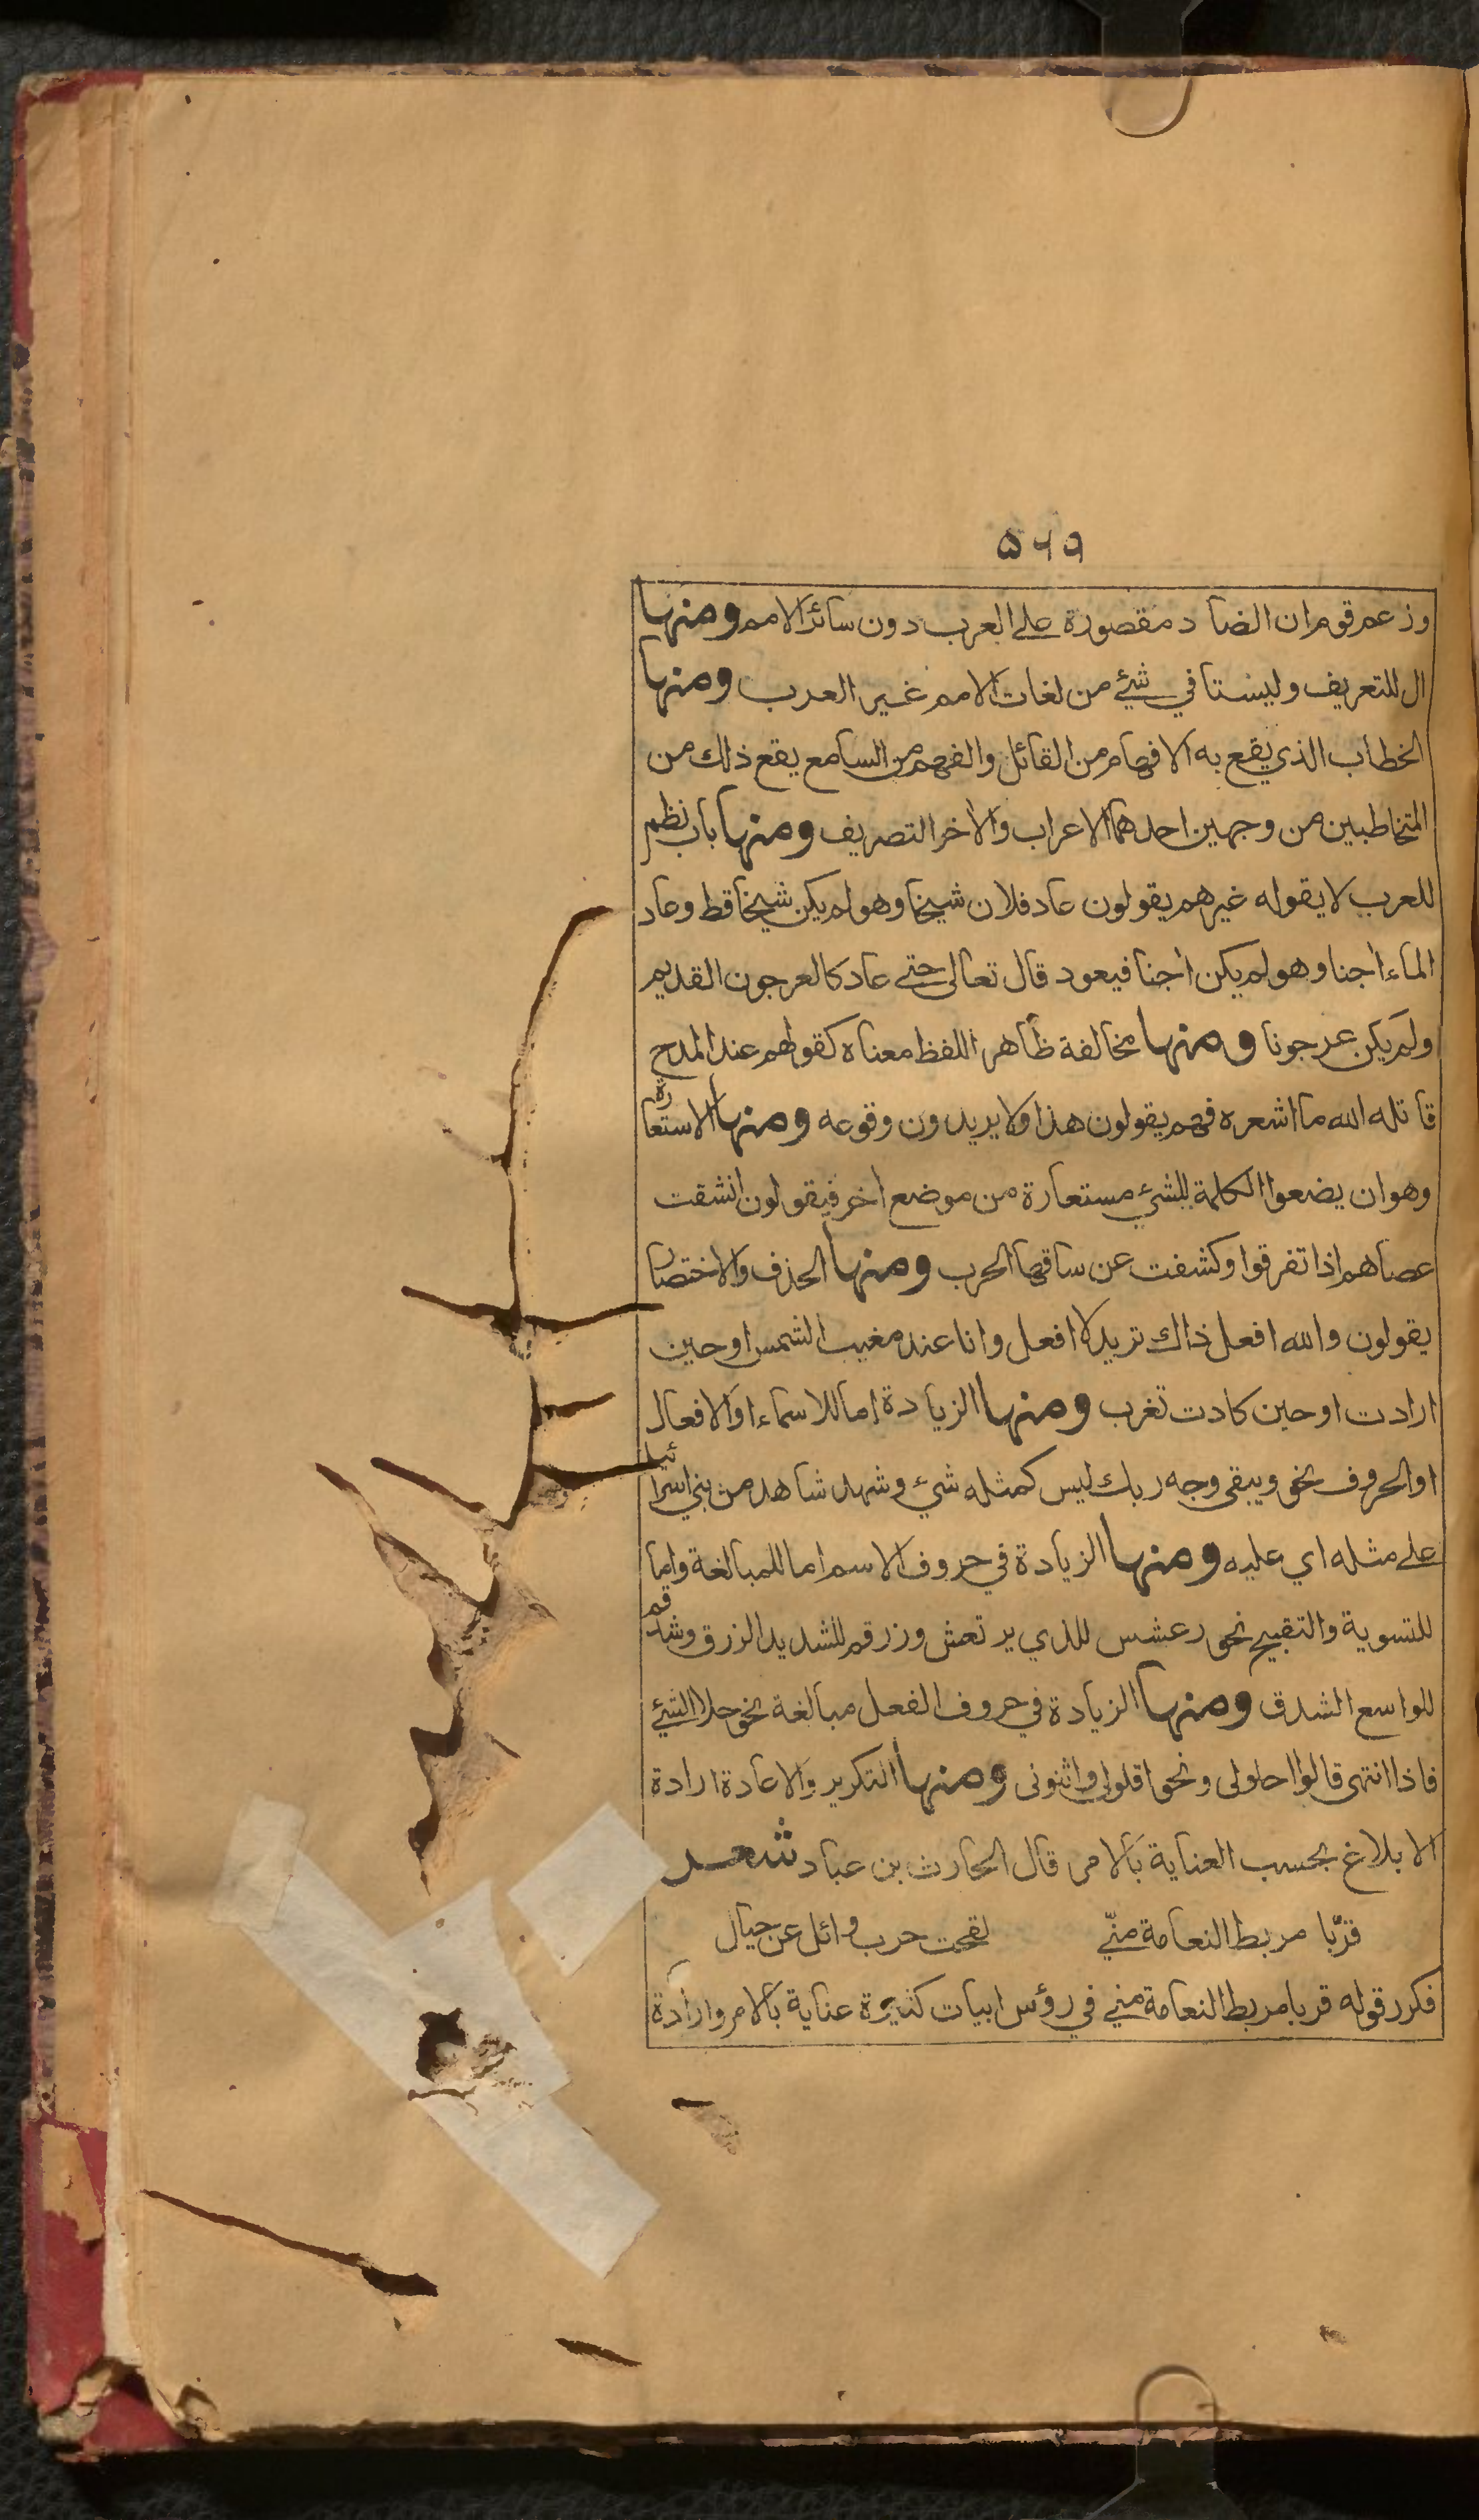 ٥٦٩
وزعم قوم ان الضاد مقصورة على العرب دون سائر الامم ومنها
ال للتعريف وليستا في شئ من لغات الامم غير العرب ومنها
الخطاب الذي يقع به الافهام من القائل والفهم من السامع يقع ذلك من
المتخاطبين من وجهين احدهما الاعراب والآخر التصريف ومنها باب نظم
للعرب لا يقوله غيرهم يقولون عاد فلان شيخا وهو لم يكن شيخا قط وعاد
الماء آجنا وهو لم يكن آجنا فيعود قال تعالى حتى عاد كالعرجون القديم
ولم يكن عرجونا ومنها مخالفة ظاهر اللفظ معناه كقولهم عند المدح
قاتله الله ما اشعره فهم يقولون هذا ولا يريدون وقوعه ومنها الاستعارة
وهو ان يضعوا الكلمة للشئ مستعارة من موضع آخر فيقولون انشقت
عصاهم اذا تفرقوا وكشفت عن ساقها الحرب ومنها الحذف والاختصار
يقولون والله افعل ذاك تريد لا افعل وانا عند مغيب الشمس او حين
ارادت او حين كادت تغرب ومنها الزيادة اما للاسماء او الافعال
او الحروف نحو ويبقى وجه ربك ليس كمثله شئ وشهد شاهد من بني اسرائيل
على مثله اي عليه ومنها الزيادة في حروف الاسم اما للمبالغة واما
للتسوية والتقبيح نحو رعشس للذي يرتعش وزرقم للشديد الزرق وشدقم
للواسع الشدق ومنها الزيادة في حروف الفعل مبالغة نحو حلا الشئ
فاذا انتهى قالوا احلولى ونحو اقلولى واثنونى ومنها التكرير والاعادة ارادة
الابلاغ بحسب العناية بالامر قال الحارث بن عباد شعر
قرّبا مربط النعامة منّي لقحت حرب وائل عن حيال
فكرر قوله قربا مربط النعامة مني في رؤس ابيات كثيرة عناية بالامر وارادة